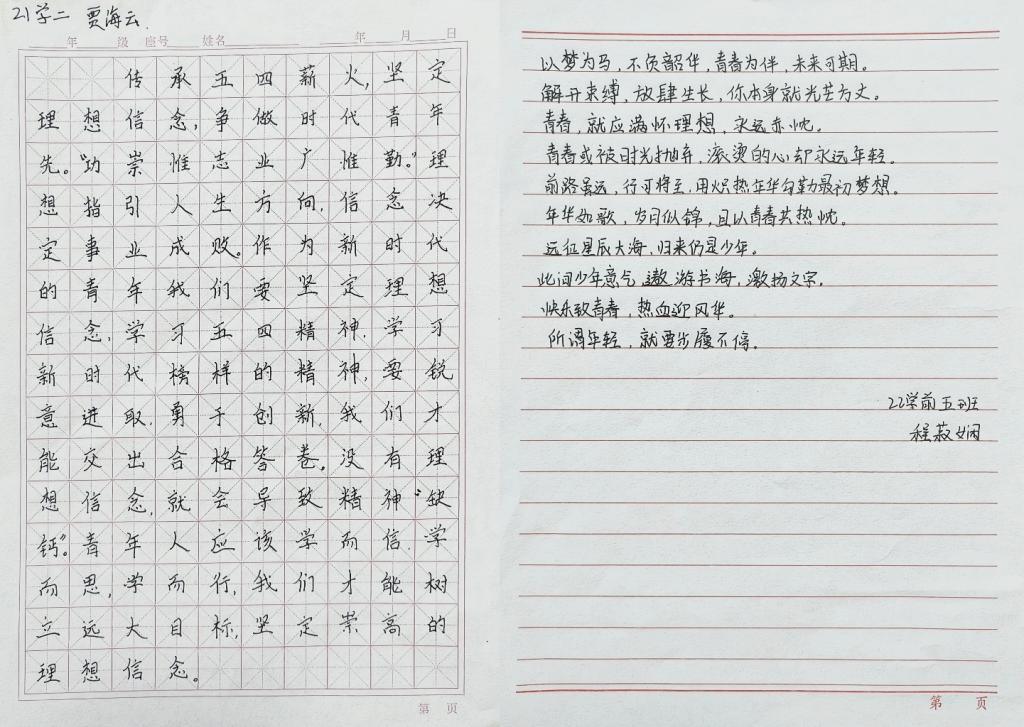 21学二 贾海云.
年 级 座号 姓名 年 月 日
传承五四薪火,坚定
理想信念,争做时代青年
先。“功崇惟志业广惟勤。”理
想指引人生方向,信念决
定事业成败。作为新时代
的青年我们要坚定理想
信念,学习五四精神,学习
新时代榜样的精神,要锐
意进取,勇于创新,我们才
能交出合格答卷,没有理
想信念,就会导致精神“缺
钙”。青年人应该学而信,学
而思,学而行,我们才能树
立远大目标,坚定崇高的
理想信念。
第 页
以梦为马,不负韶华,青春为伴,未来可期。
解开束缚,放肆生长,你本身就光芒万丈。
青春,就应满怀理想,永远赤忱。
青春或被时光抛弃,滚烫的心却永远年轻。
前路虽远,行可将至,用炽热年华勾勒最初梦想。
年华如歌,岁月似锦,且以青春共热忱。
远征星辰大海,归来仍是少年。
此间少年意气,遨游书海,激扬文字。
快乐致青春,热血迎风华。
所谓年轻,就要步履不停。
22学前五班
程菽娴
第 页